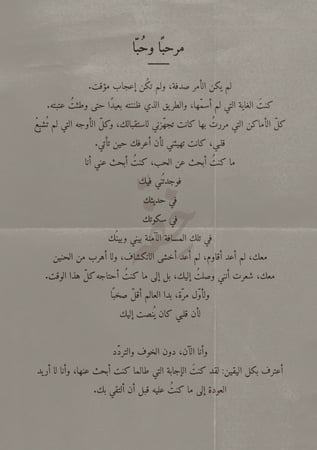 مرحبًا وحُبًّا
لم يكن الأمر صدفة، ولم تكُن إعجاب مؤقت.
كنتَ الغاية التي لم أسمّها، والطريق الذي ظننته بعيدًا حتى وطئتُ عتبته.
كلّ الأماكن التي مررتُ بها كانت تجهّزني لاستقبالك، وكلّ الأوجه التي لم تُشبِعْ
قلبي، كانت تهيئني لأن أعرفك حين تأتي.
ما كنتُ أبحث عن الحب، كنتُ أبحث عني أنا
فوجدتُني فيك
في حديثك
في سكوتك
في تلك المسافة الآمنة بيني وبينك
معك، لم أعد أقاوم، لم أعد أخشى الانكشاف، ولا أهرب من الحنين
معك، شعرت أنني وصلتُ إليك، بل إلى ما كنتُ أحتاجه كلّ هذا الوقت.
ولأوّل مرّة، بدا العالم أقلّ صخبًا
لأن قلبي كان يُنصت إليك
وأنا الآن، دون الخوف والتردّد
أعترف بكل اليقين: لقد كنتَ الإجابة التي طالما كنت أبحث عنها، وأنا لا أريد
العودة إلى ما كنتُ عليه قبل أن ألتقي بك.